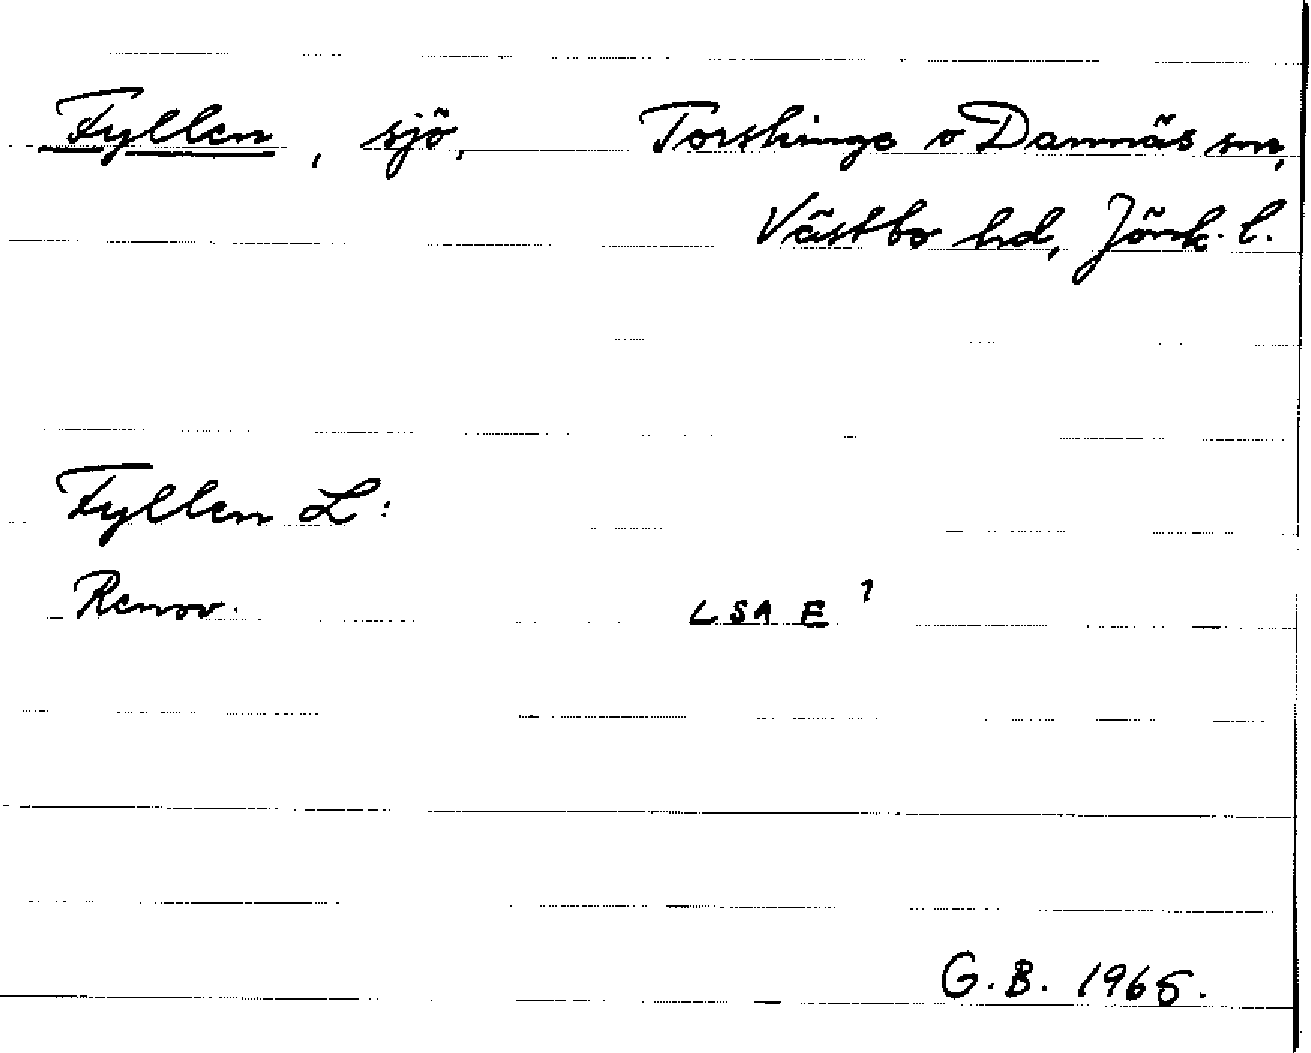 Fyllen, sjö, Torskinge o Dannäs sn,
Västbo hd, Jönk. l.
Fyllen L:
Renov. LSA E 1
G.B. 1965.